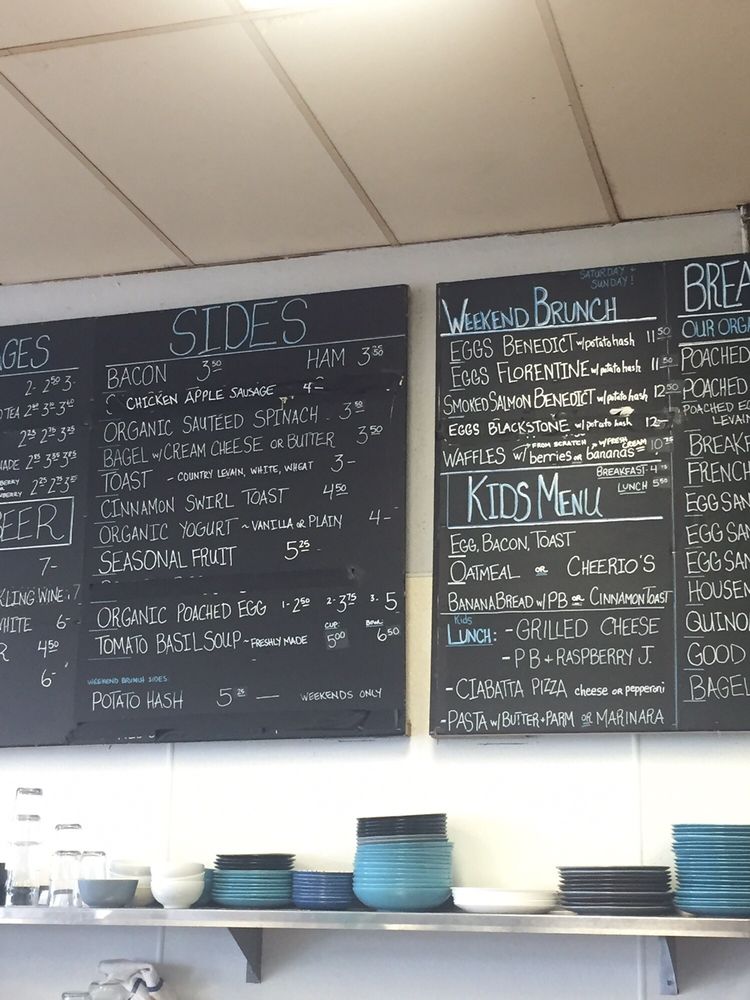 GES
2- 2.50 3-
TEA
2.25 2.75 3.25
ADE
BERRY
BEER
7-
KLING WINE 7
WHITE 6-
R 4.50
6-
SIDES
BACON 3.50 HAM
CHICKEN APPLE SAUSAGE 4-
ORGANIC SAUTEED SPINACH 3.50
BAGEL W/ CREAM CHEESE OR BUTTER 3.50
TOAST - COUNTRY LEVAIN, WHITE, WHEAT 3-
CINNAMON SWIRL TOAST 4.50
ORGANIC YOGURT ~ VANILLA OR PLAIN 4-
SEASONAL FRUIT 5.25
ORGANIC POACHED EGG 1-2.50 2-3.75 3-5
CUP BOWL
TOMATO BASIL SOUP ~ FRESHLY MADE 5.00 6.50
WEEKEND BRUNCH SIDES:
POTATO HASH 5.25 — WEEKENDS ONLY
SATURDAY +
SUNDAY!
WEEKEND BRUNCH
EGGS BENEDICT w/potato hash 11.50
EGGS FLORENTINE w/potato hash 11.50
SMOKED SALMON BENEDICT w/potato hash 12.50
EGGS BLACKSTONE w/potato hash 12-
FROM SCRATCH w/ FRESH CREAM
WAFFLES w/ berries or bananas 10.75
BREAKFAST-4.75
LUNCH 5.50
KIDS MENU
EGG, BACON, TOAST
OATMEAL OR CHEERIO'S
BANANA BREAD w/ PB OR CINNAMON TOAST
Kids
LUNCH: - GRILLED CHEESE
- PB + RASPBERRY J.
- CIABATTA PIZZA cheese or pepperoni
- PASTA w/ BUTTER + PARM OR MARINARA
BREA
OUR ORGA
POACHED
POACHED
POACHED EG
LEVAIN
BREAKF
FRENCH
EGG SAN
EGG SAN
EGG SAN
HOUSEM
QUINO
GOOD
BAGEL